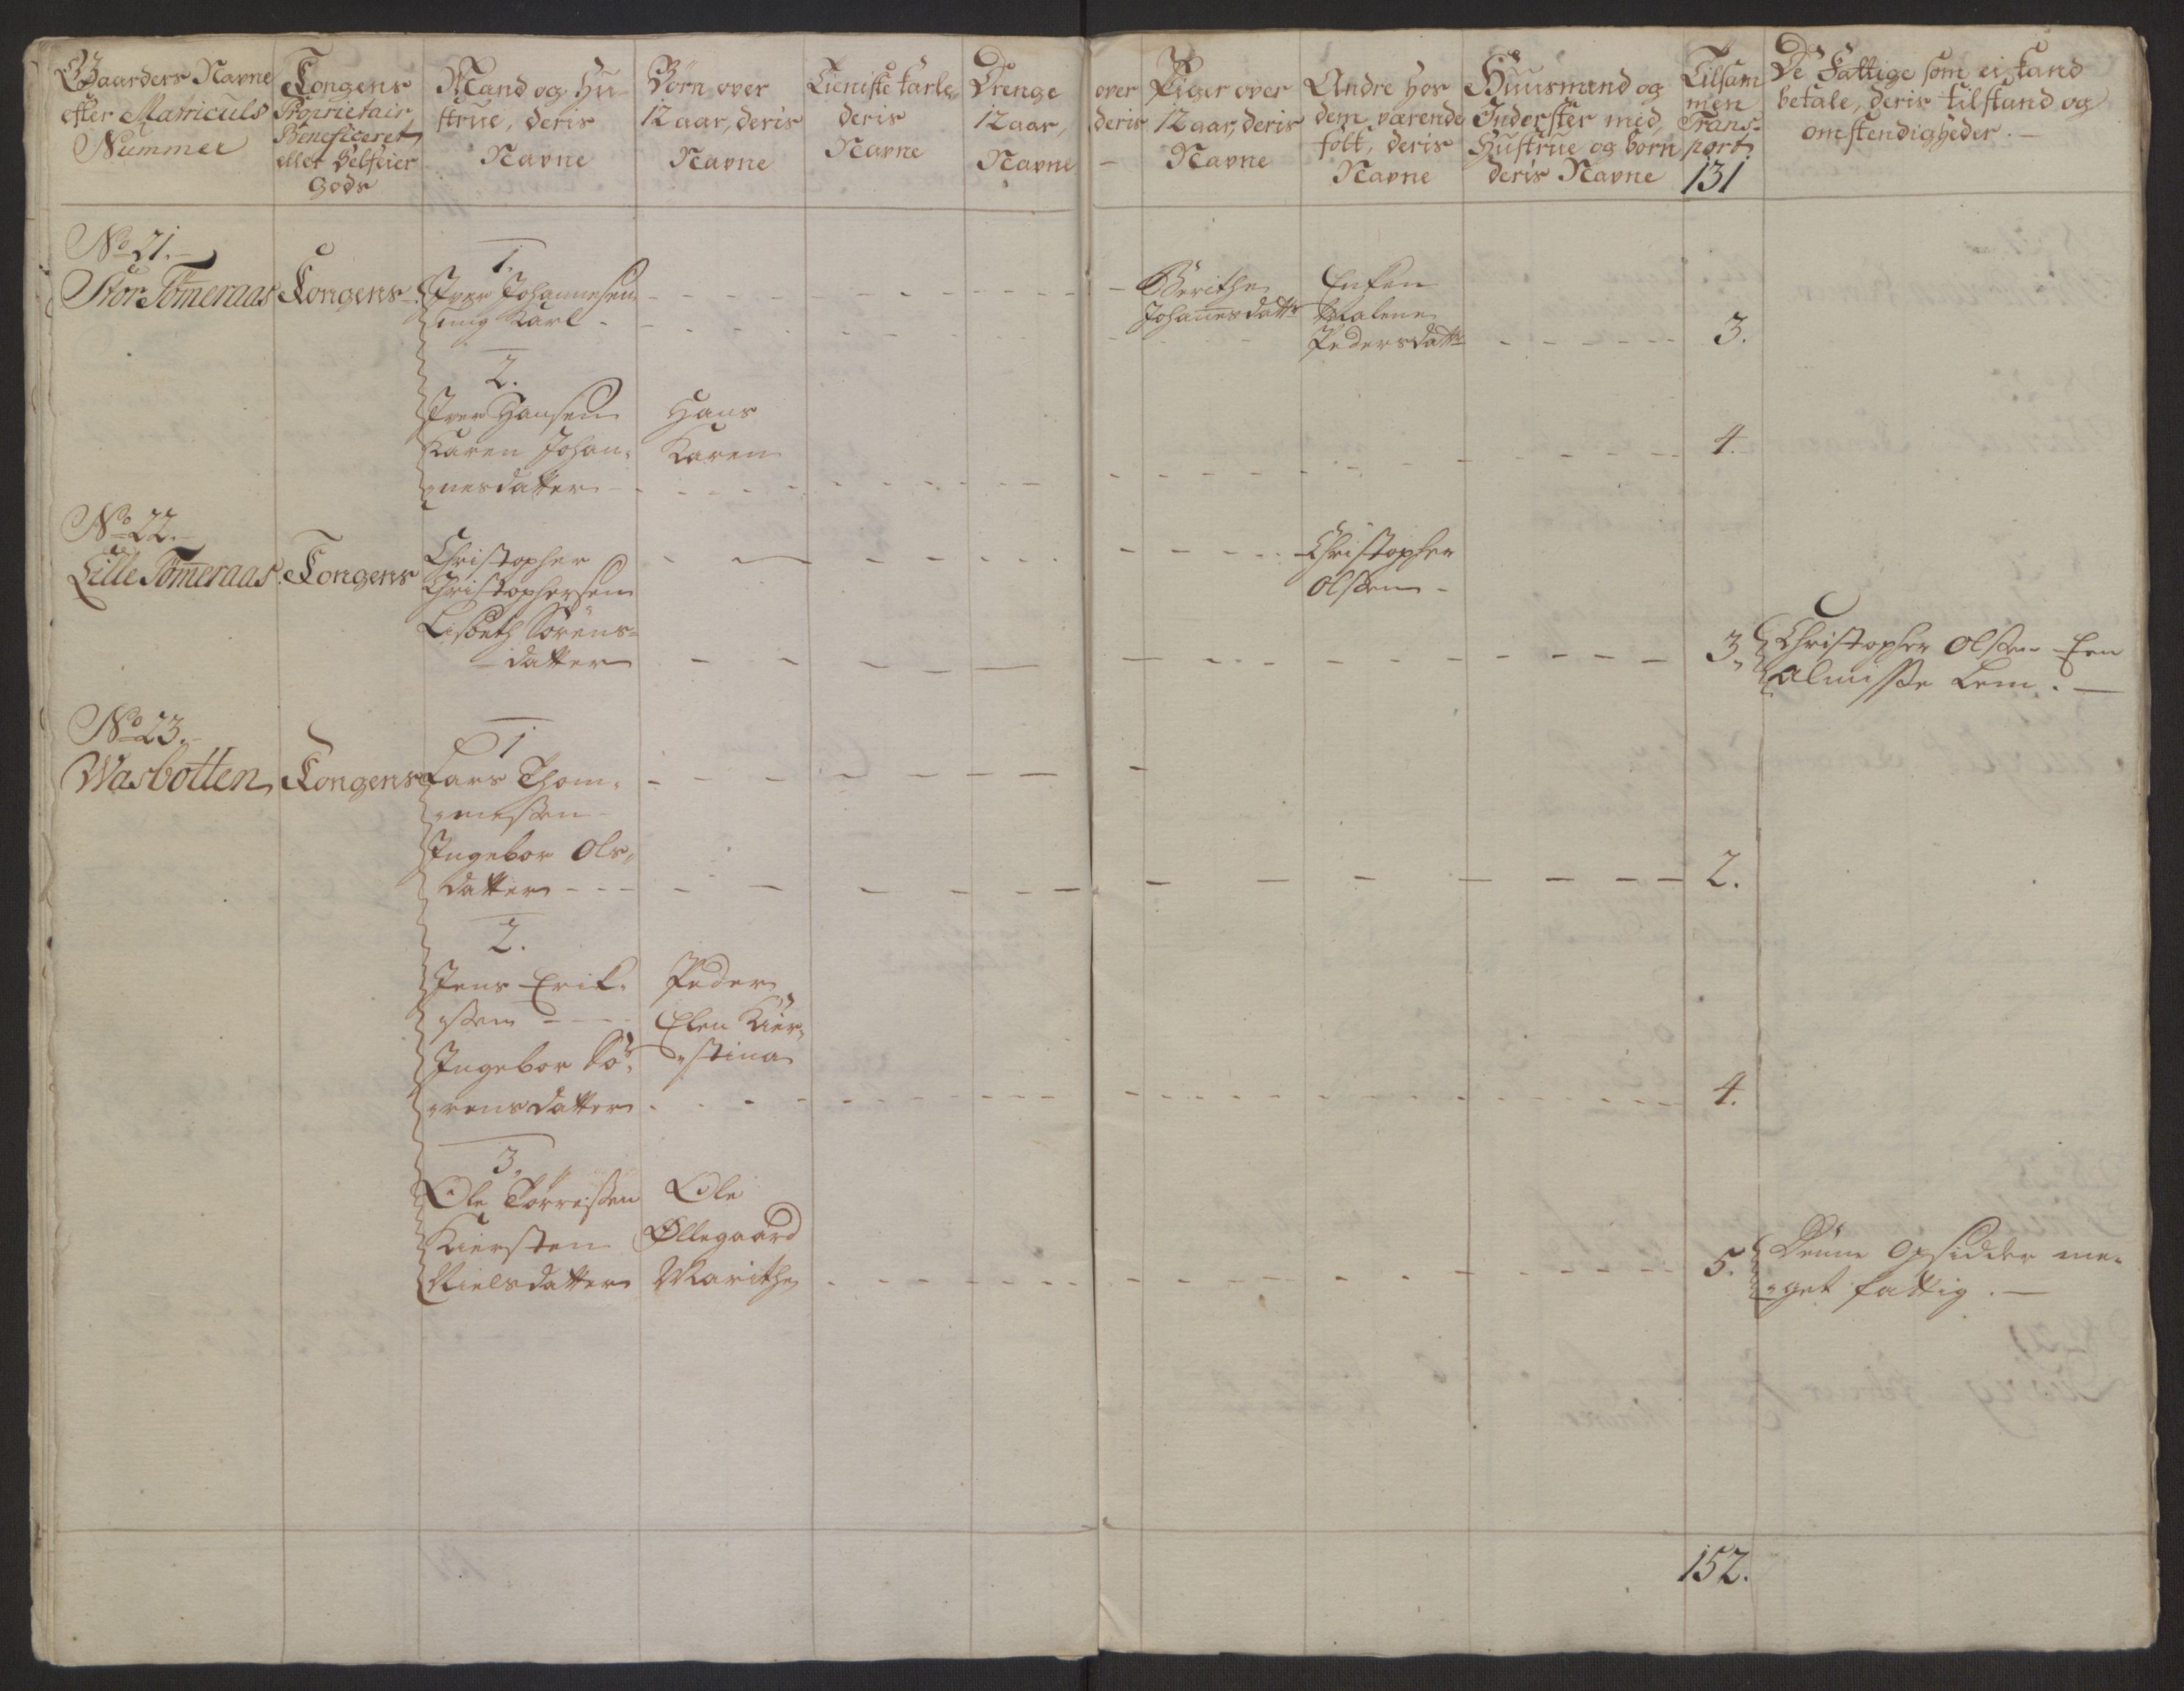 Gaarders Navne
efter Matriculs
Nummer
Kongens
Proprietair
Beneficeret
eller Selfeier
Gods
Mand og Hu
strue, deris
Navne
Börn over
12 aar, deris
Navne
Tieniste karle,
deris
Navne
Drenge over
12 aar, deris
Navne
Piger over
12 aar, deris
Navne
Andre hos
dem værende
folk, deris
Navne
Huusmænd og
Inderster med,
Hustrue og born
deris Navne
Tilsam
men
Trans-
port
131
De Fattige som ei kand
betale, deris tilstand og
omstendigheder. -
No 21.
Stor Tömeraas
Kongens
1.
Iver Johannesen
ung Karl
Berithe
Johanesdattr
Enken
Malene
Pedersdattr
3.
2.
Iver Hansen
Karen Johan-
nesdatter
Hans
Karen
4.
No 22.
Lille Tömeraas
Kongens
Christopher
Christophersen
Lisbeth Sörens-
datter
Christopher
Olsen
3.
Christopher Olsen Een
Almisse Lem. -
No 23.
Wasbotten
Kongens
1
Lars Thom-
mesen
Ingebor Ols-
datter
2.
2.
Jens Erik-
sen
Ingebor Sö-
rensdatter
Peder
Elen Kier-
stina
4.
3.
Ole Törresen
Kiersten
Nielsdatter
Ole
Øllegaard
Marithe
5.
Denne Opsidder me-
get fattig. -
152.